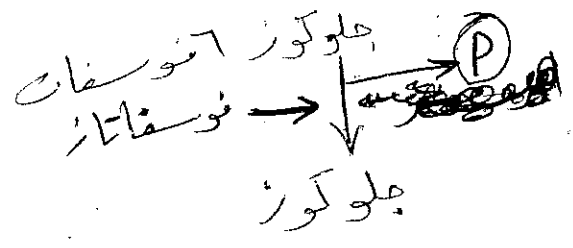 جلوكوز ٦ فوسفات
P
فوسفاتاز
جلوكوز